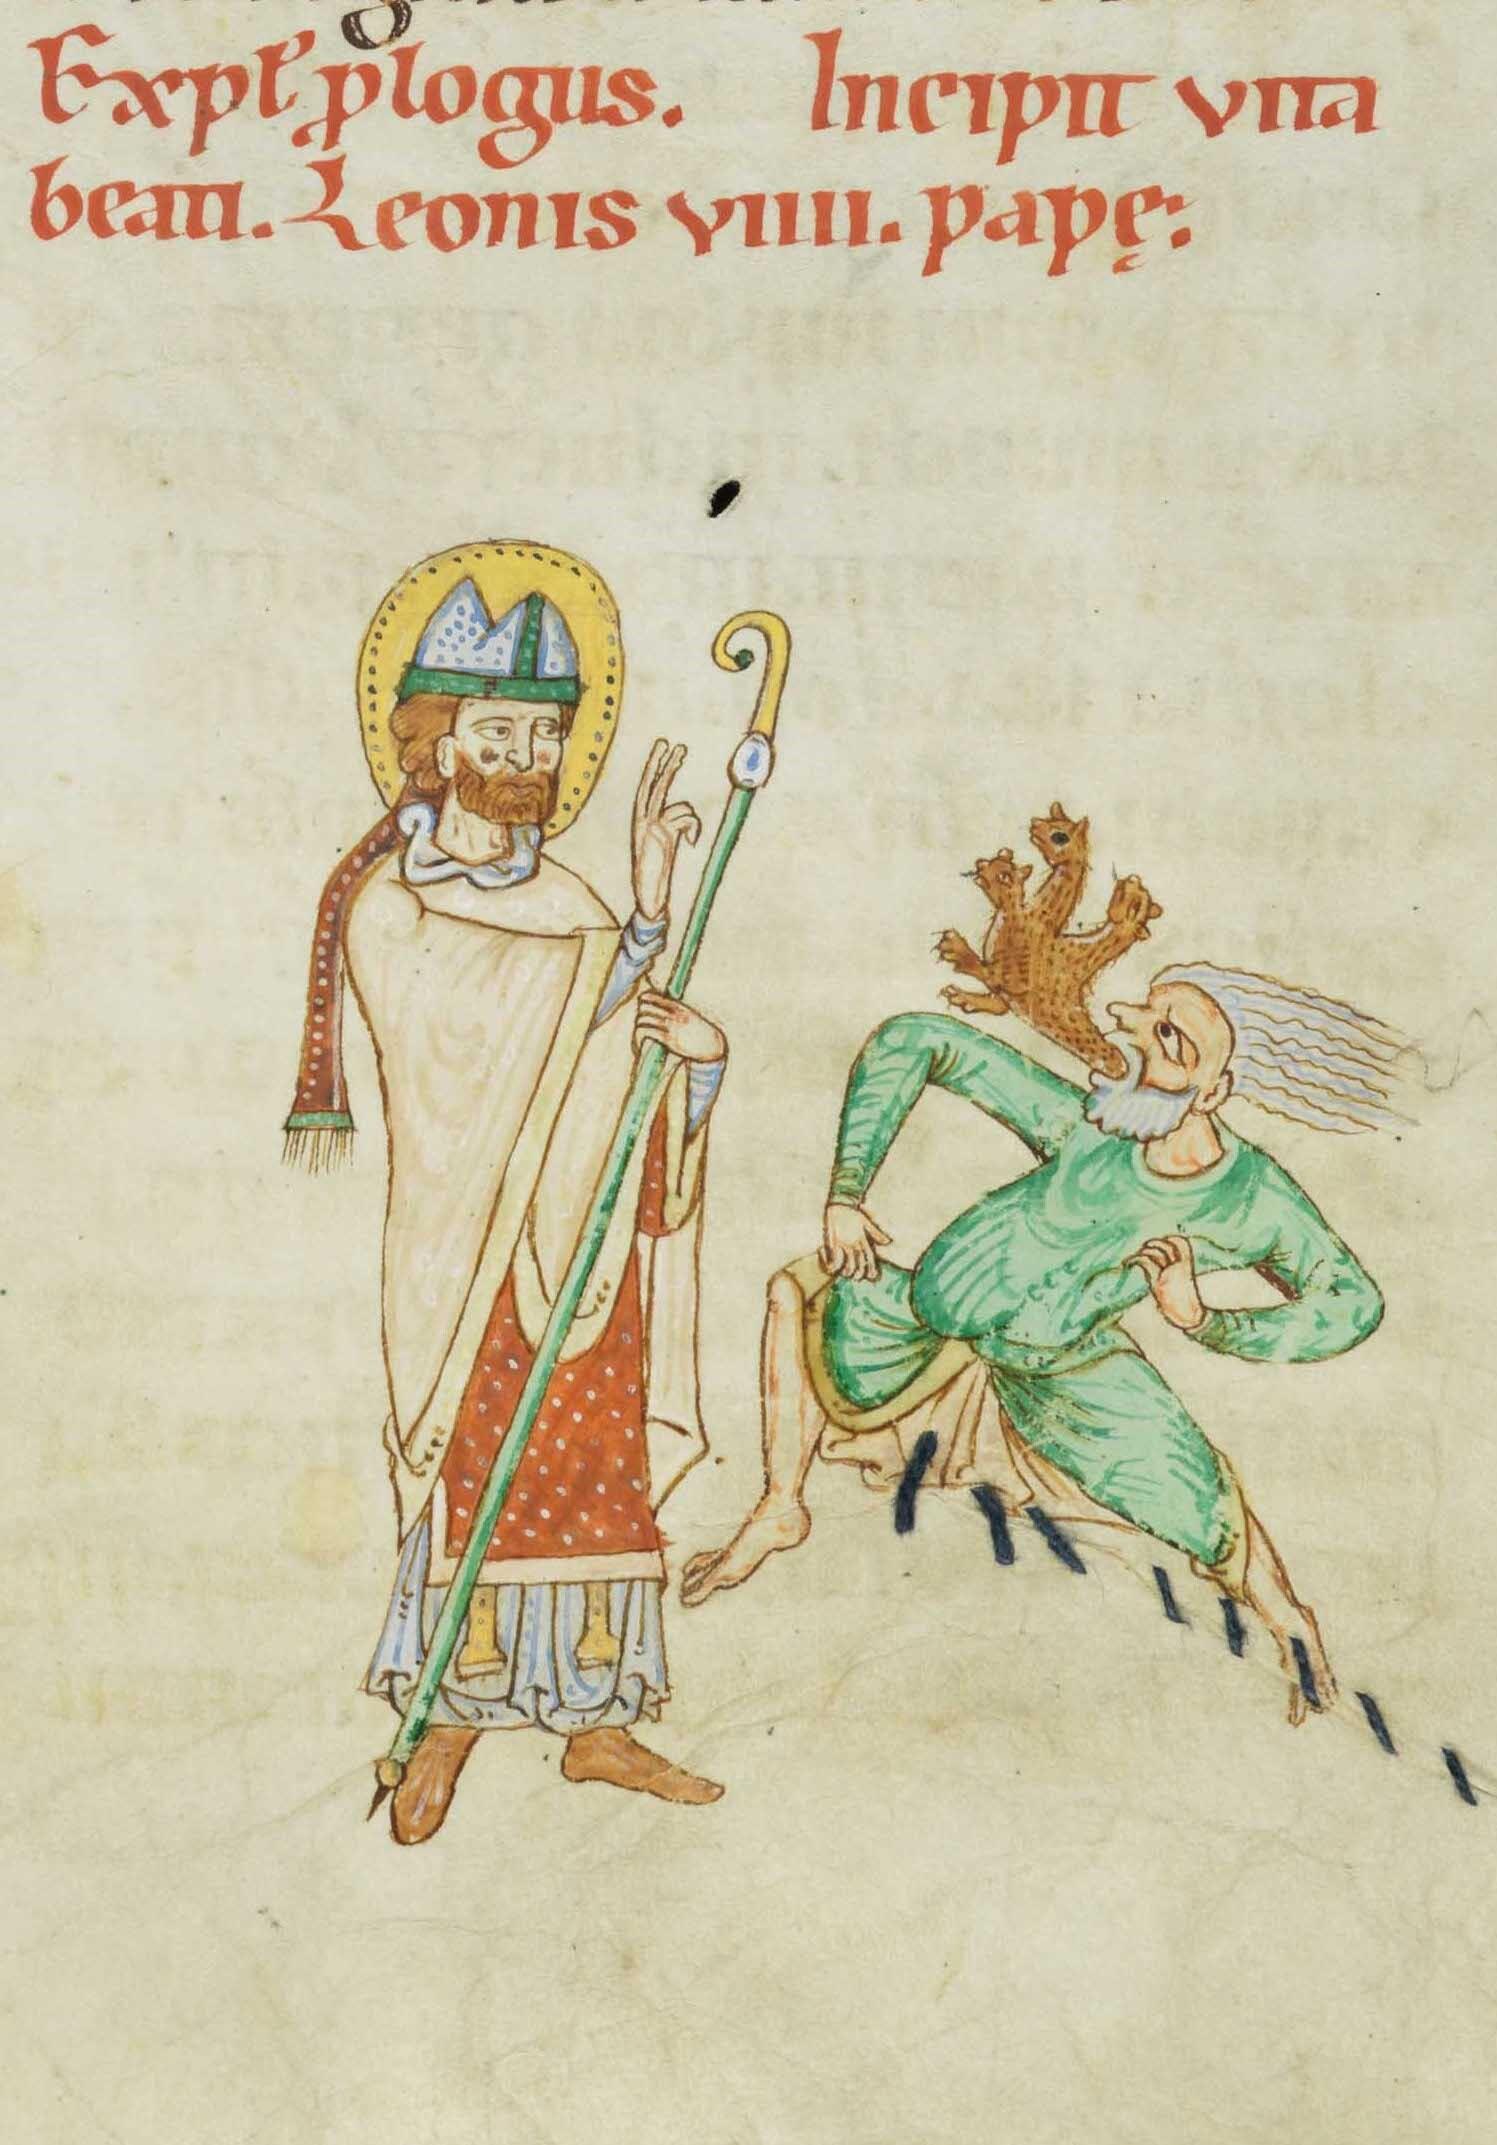 Explꝭ ꝓlogus. Incipit vita
beati. Leonis viiii. papę: